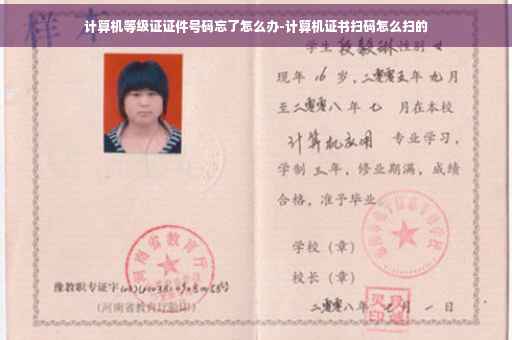 计算机等级证证件号码忘了怎么办-计算机证书扫码怎么扫的
样本
学生段毅琳性别 女
现年 16 岁，二零零五年 九月
至二零零八年 七 月在本校
计算机应用 专业学习，
学制 三年，修业期满，成绩
合格，准予毕业
学校（章）
校长（章）
二零零八年 七 月 一 日
河南省教育厅
豫教职专证字
（河南省教育厅验印）